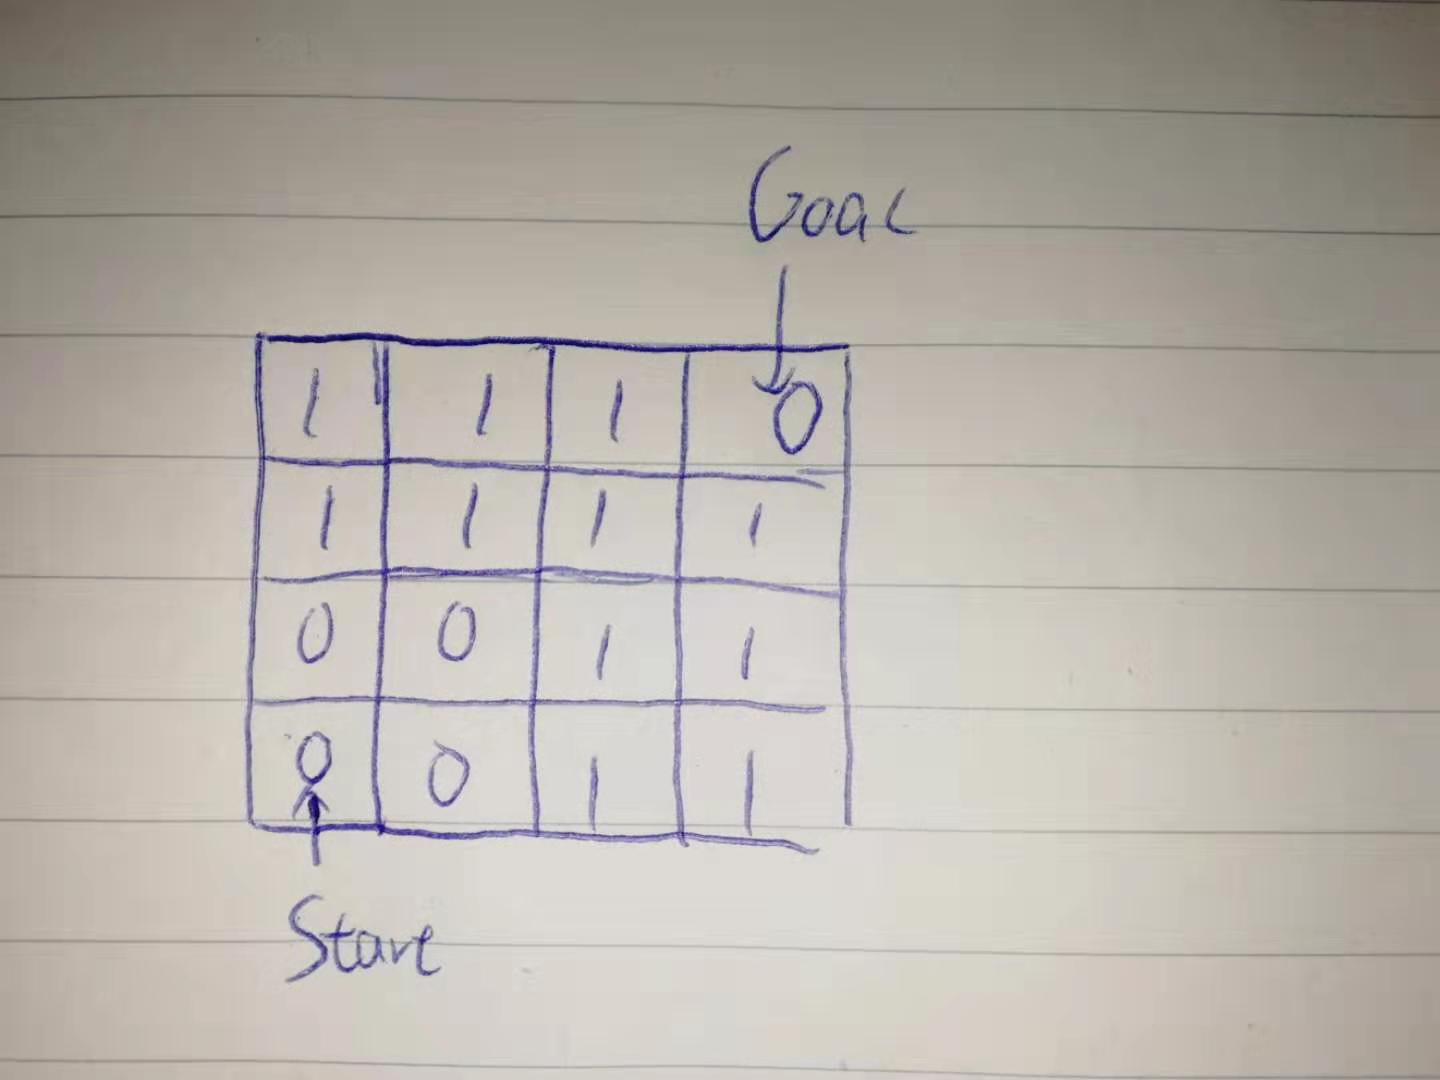 Goal
1 1 1 0
1 1 1 1
0 0 1 1
0 0 1 1
Start